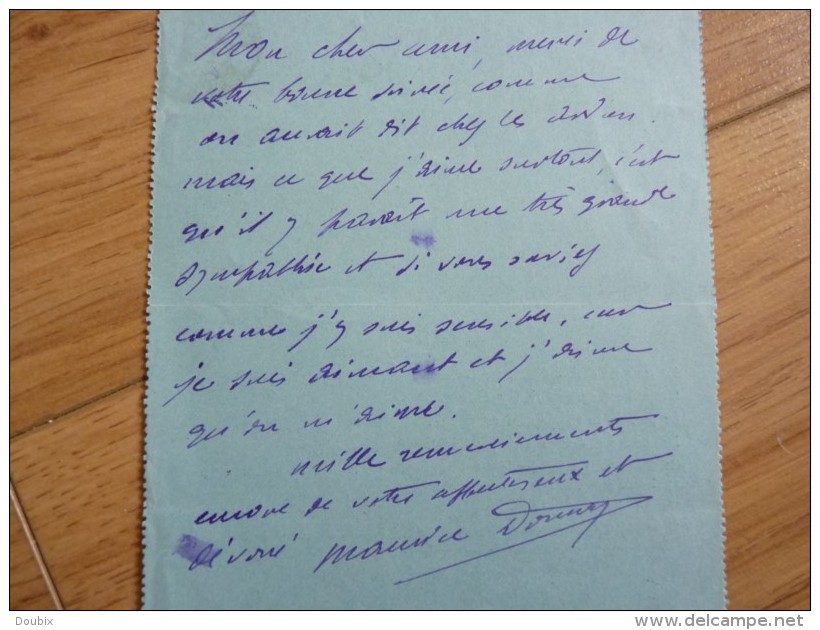 Mon cher ami, merci de
votre bonne soirée, comme
on aurait dit chez les
mais ce que j'aime surtout, c'est
qu'il y paraît une très grande
sympathie et si vous saviez
comme j'y suis sensible, car
je suis aimant et j'aime
qu'on m'aime.
mille remerciements
encore de votre affectueux et
dévoué Maurice Donnay
Doubix
www.delcampe.net